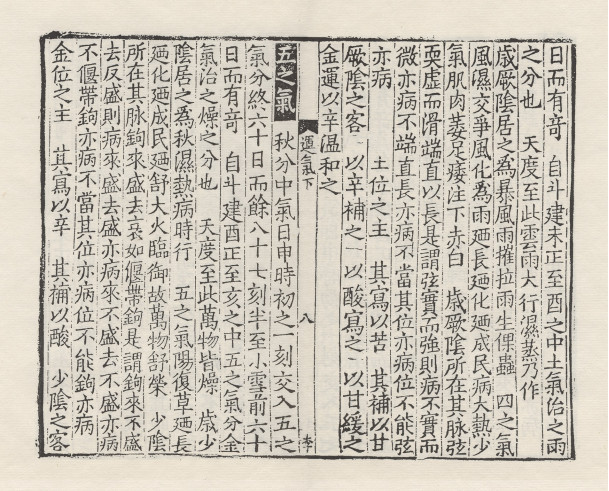 日而有竒　自斗建未正至酉之中土氣治之雨
之分也　天度至此雲雨大行濕蒸乃作
歲厥陰居之爲暴風雨摧拉雨生倮蟲　四之氣
風濕交爭風化爲雨廼長廼化廼成民病大熱少
氣肌肉萎足痿注下赤白　歲厥陰所在其脉弦
耎虛而滑端直以長是謂弦實而強則病不實而
微亦病不端直長亦病不當其位亦病位不能弦
亦病　土位之主　其寫以苦　其補以甘
厥陰之客　以辛補之　以酸寫之　以甘緩之
金運以辛温和之
運氣下　八　李
五之氣　秋分中氣日申時初之一刻交入五之
氣分終六十日而餘八十七刻半至小雪前六十
日而有竒　自斗建酉正至亥之中五之氣分金
氣治之燥之分也　天度至此萬物皆燥　歲少
陰居之爲秋濕熱病時行　五之氣陽復草廼長
廼化廼成民廼舒大火臨御故萬物舒榮　少陰
所在其脉鉤來盛去衰如偃帶鉤是謂鉤來不盛
去反盛則病來盛去盛亦病來不盛去不盛亦病
不偃帶鉤亦病不當其位亦病位不能鉤亦病
金位之主　其寫以辛　其補以酸　少陰之客